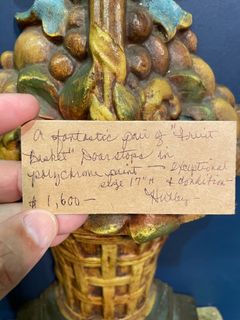 A fantastic pair of "Fruit
Basket" Doorstops in
polychrome paint — exceptional
size 17" H & condition
$1,600 — Hubley —